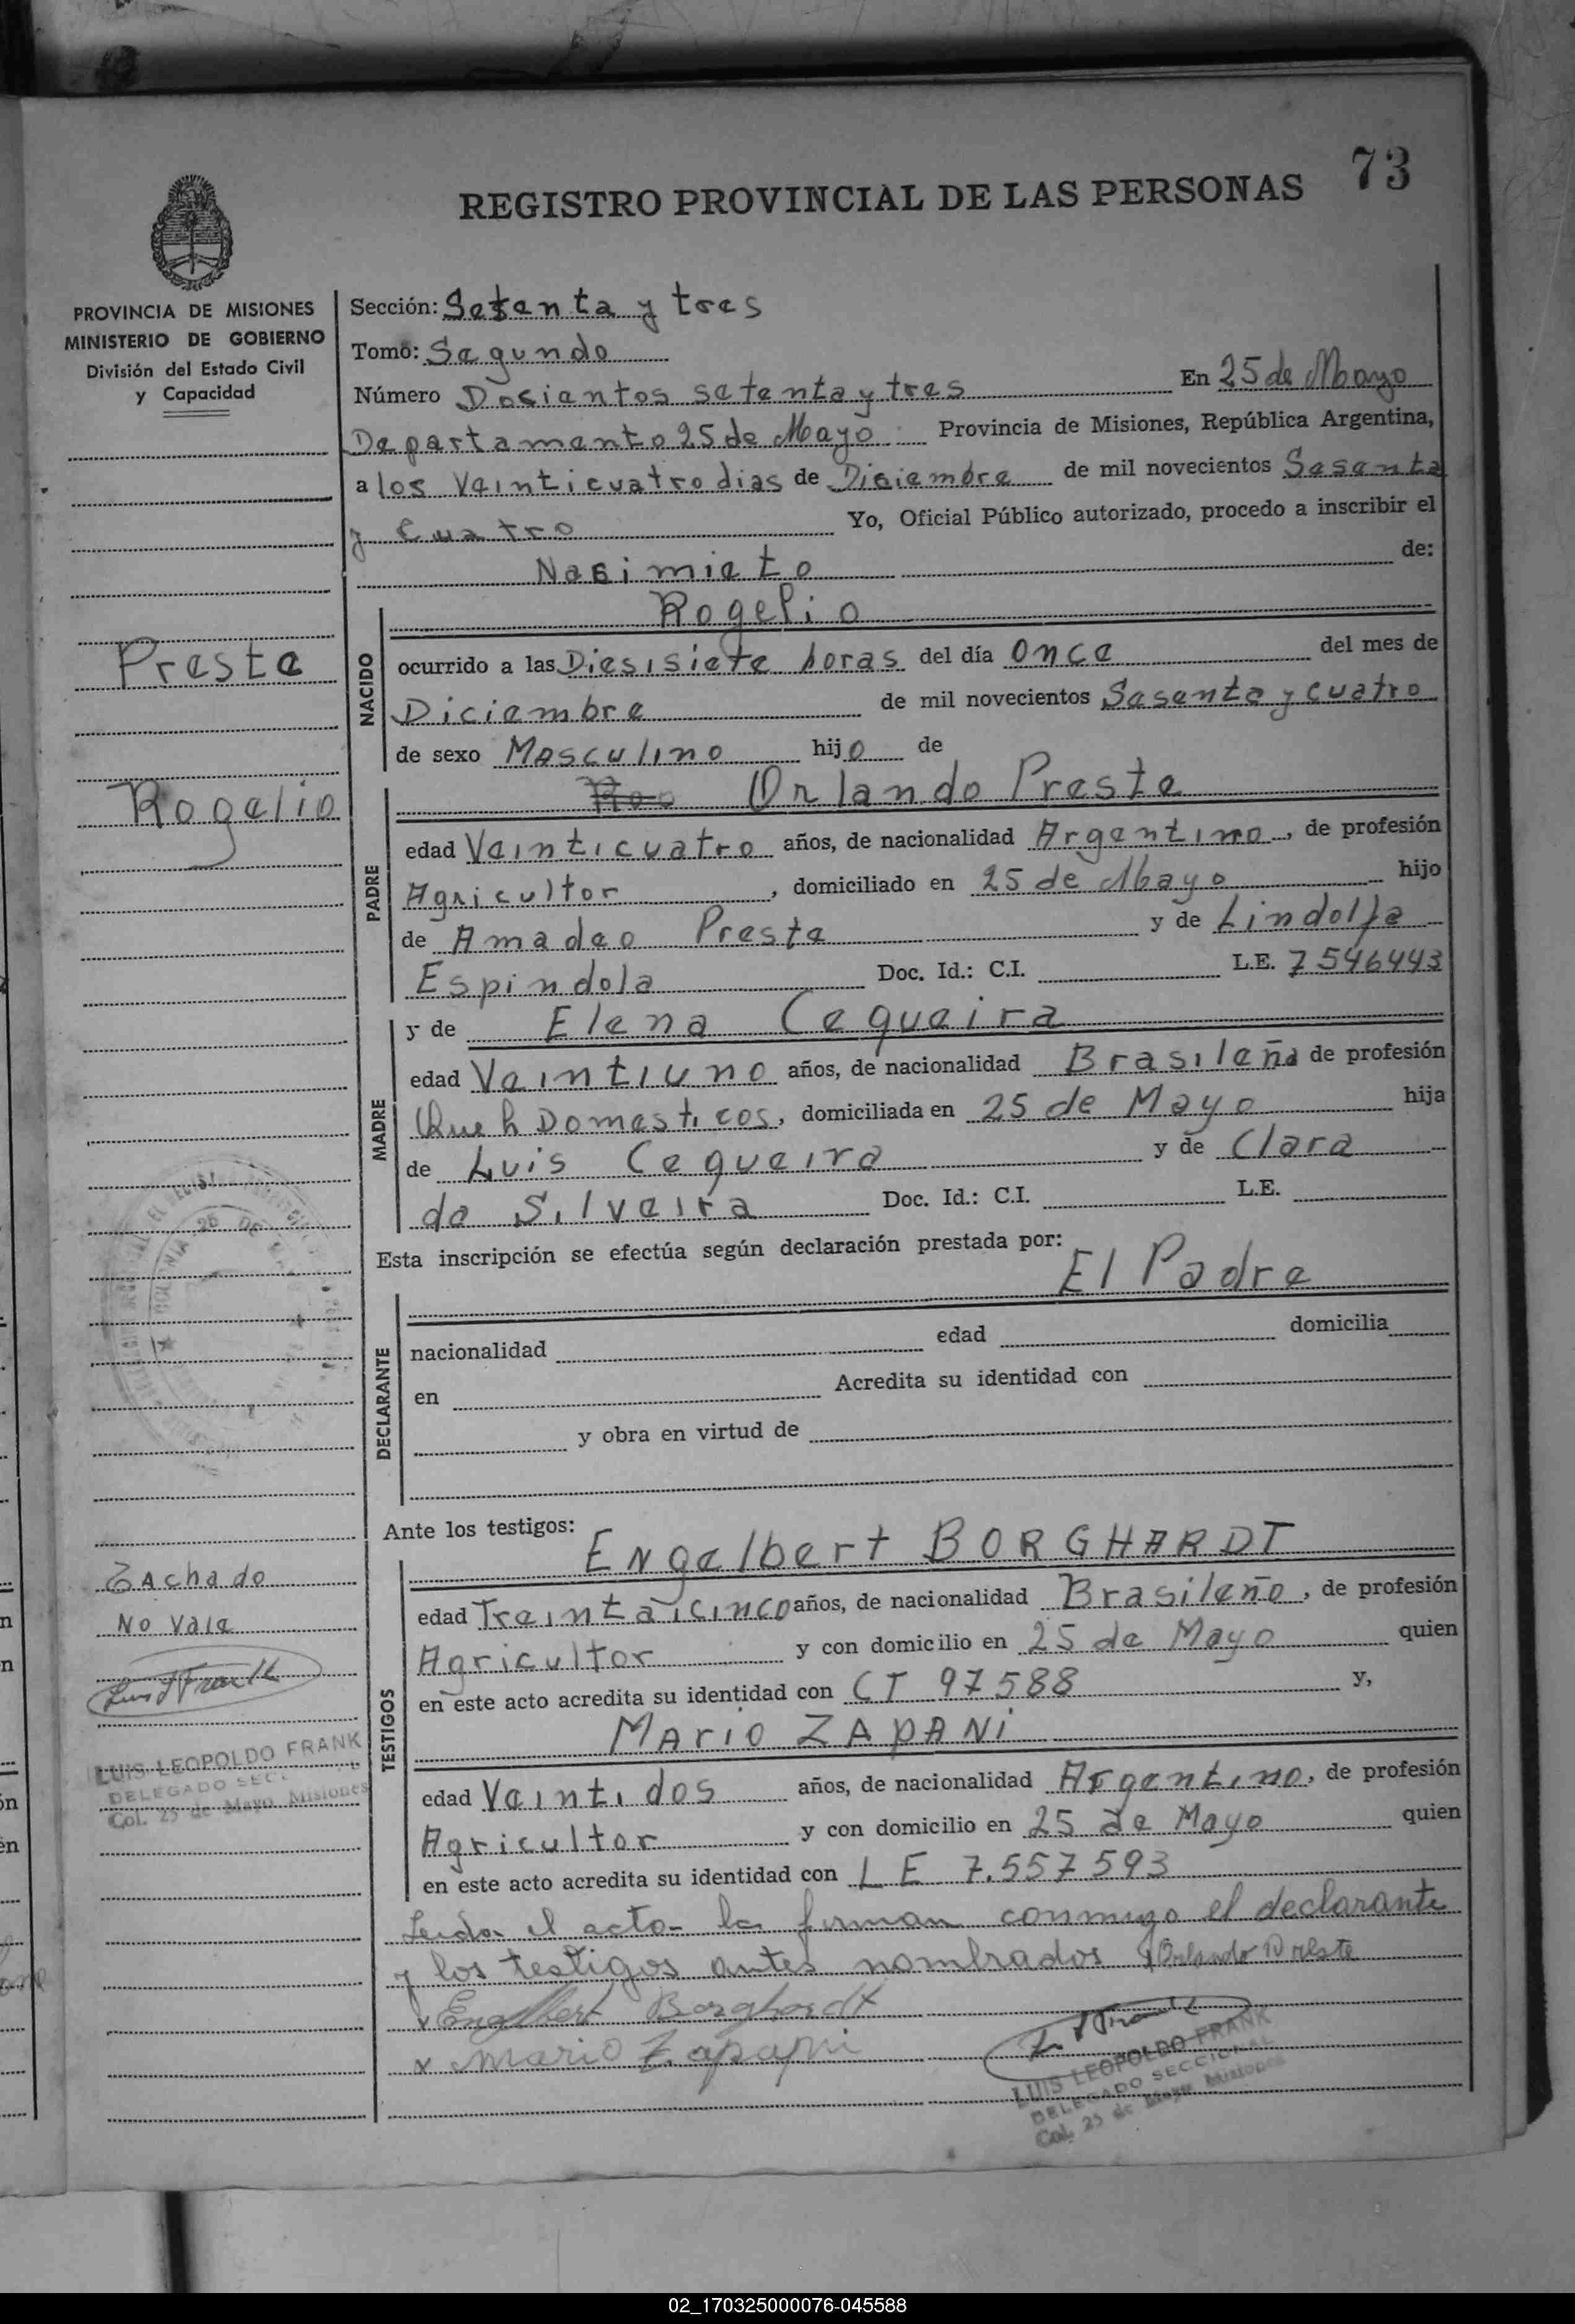 73
REGISTRO PROVINCIAL DE LAS PERSONAS
PROVINCIA DE MISIONES
MINISTERIO DE GOBIERNO
División del Estado Civil
y Capacidad
Preste
Rogelio
Tachado
No Vale
LUIS LEOPOLDO FRANK
DELEGADO SECC
Col. 25 de Mayo Misiones
Sección: Setenta y tres
Tomo: Segundo
Número Dosientos setenta y tres En 25 de Mayo
Departamento 25 de Mayo Provincia de Misiones, República Argentina,
a los Veinticuatro dias de Diciembre de mil novecientos Sesenta
y Cuatro Yo, Oficial Público autorizado, procedo a inscribir el
Nasimieto de:
NACIDO
Rogelio
ocurrido a las Diesisiete horas del día Once del mes de
Diciembre de mil novecientos Sesenta y cuatro
de sexo Masculino hijo de
PADRE
Roo Orlando Preste
edad Veinticuatro años, de nacionalidad Argentino, de profesión
Agricultor, domiciliado en 25 de Mayo hijo
de Amadeo Preste y de Lindolfa
Espindola Doc. Id.: C.I. L.E. 7546443
MADRE
y de Elena Cequeira
edad Veintiuno años, de nacionalidad Brasileña de profesión
Queh Domesticos, domiciliada en 25 de Mayo hija
de Luis Cequeira y de Clara
da Silveira Doc. Id.: C.I. L.E.
Esta inscripción se efectúa según declaración prestada por:
El Padre
DECLARANTE
nacionalidad edad domicilia
en Acredita su identidad con
y obra en virtud de
Ante los testigos:
TESTIGOS
Engelbert BORGHARDT
edad Treinta icinco años, de nacionalidad Brasileño, de profesión
Agricultor y con domicilio en 25 de Mayo quien
en este acto acredita su identidad con CI 97588 y,
MARIO ZAPANI
edad Veintidos años, de nacionalidad Argentino, de profesión
Agricultor y con domicilio en 25 de Mayo quien
en este acto acredita su identidad con L E 7.557593
Leida el acto la firman conmigo el declarante
y los testigos antes nombrados x Orlando Preste
x Engelbert Borghardt
x Mario Zapani
LUIS LEOPOLDO FRANK
DELEGADO SECCIONAL
Col. 25 de Mayo Misiones
02_170325000076-045588